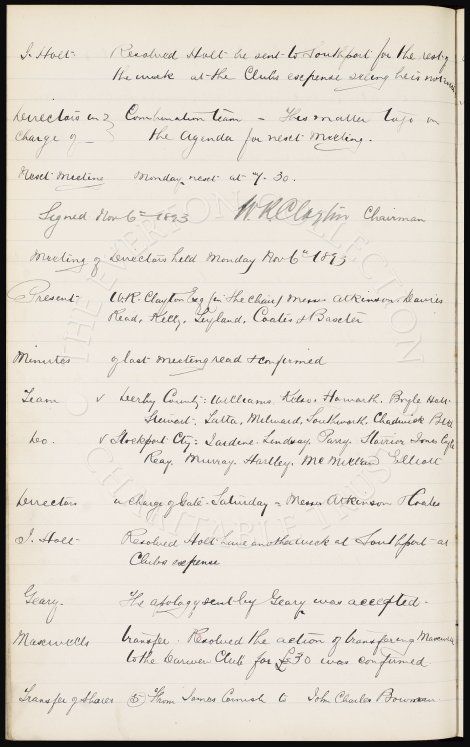 J. Holt Resolved Holt be sent to Southport for the rest of
the week at the Clubs expense seeing he is not
Directors in Combination team - This matter to go on
charge of - the Agenda for next Meeting.
Next Meeting Monday next at 7-30.
Signed Nov 6th 1893 W.R. Clayton Chairman
Meeting of Directors held Monday Nov 6th 1893
Present W.R. Clayton Esq (in the chair) Messrs Atkinson, Davies
Read, Kelly, Leyland, Coates & Baxter
Minutes of last meeting read & confirmed
Team v Derby County: Williams, Kelso, Howarth, Boyle Holt
Stewart, Latta, Milward, Southworth, Chadwick Bell
Do. v Stockport Cty: Jardine, Lindsay, Parry, Storrier Jones
Reay, Murray, Hartley, McMillan Elliott
Directors in charge of Gate - Saturday - Messrs Atkinson & Coates
J. Holt Resolved Holt have another week at Southport at
Clubs expense
Geary. The apology sent by Geary was accepted.
Maxwells transfer. Resolved the action of transfering Maxwell
to the Darwen Club for £30 was confirmed
Transfer of Shares (5) From James Cornish to John Charles Bowman
THE EVERTON COLLECTION
CHARITABLE TRUST